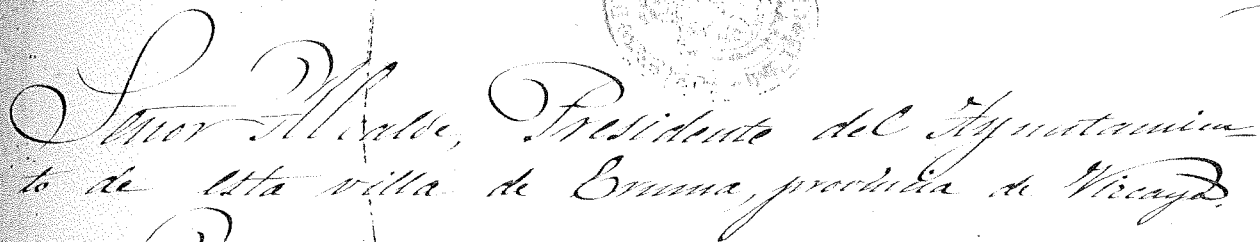 Señor Alcalde, Presidente del Ayuntamien-
to de esta villa de Ermua, provincia de Vizcaya.